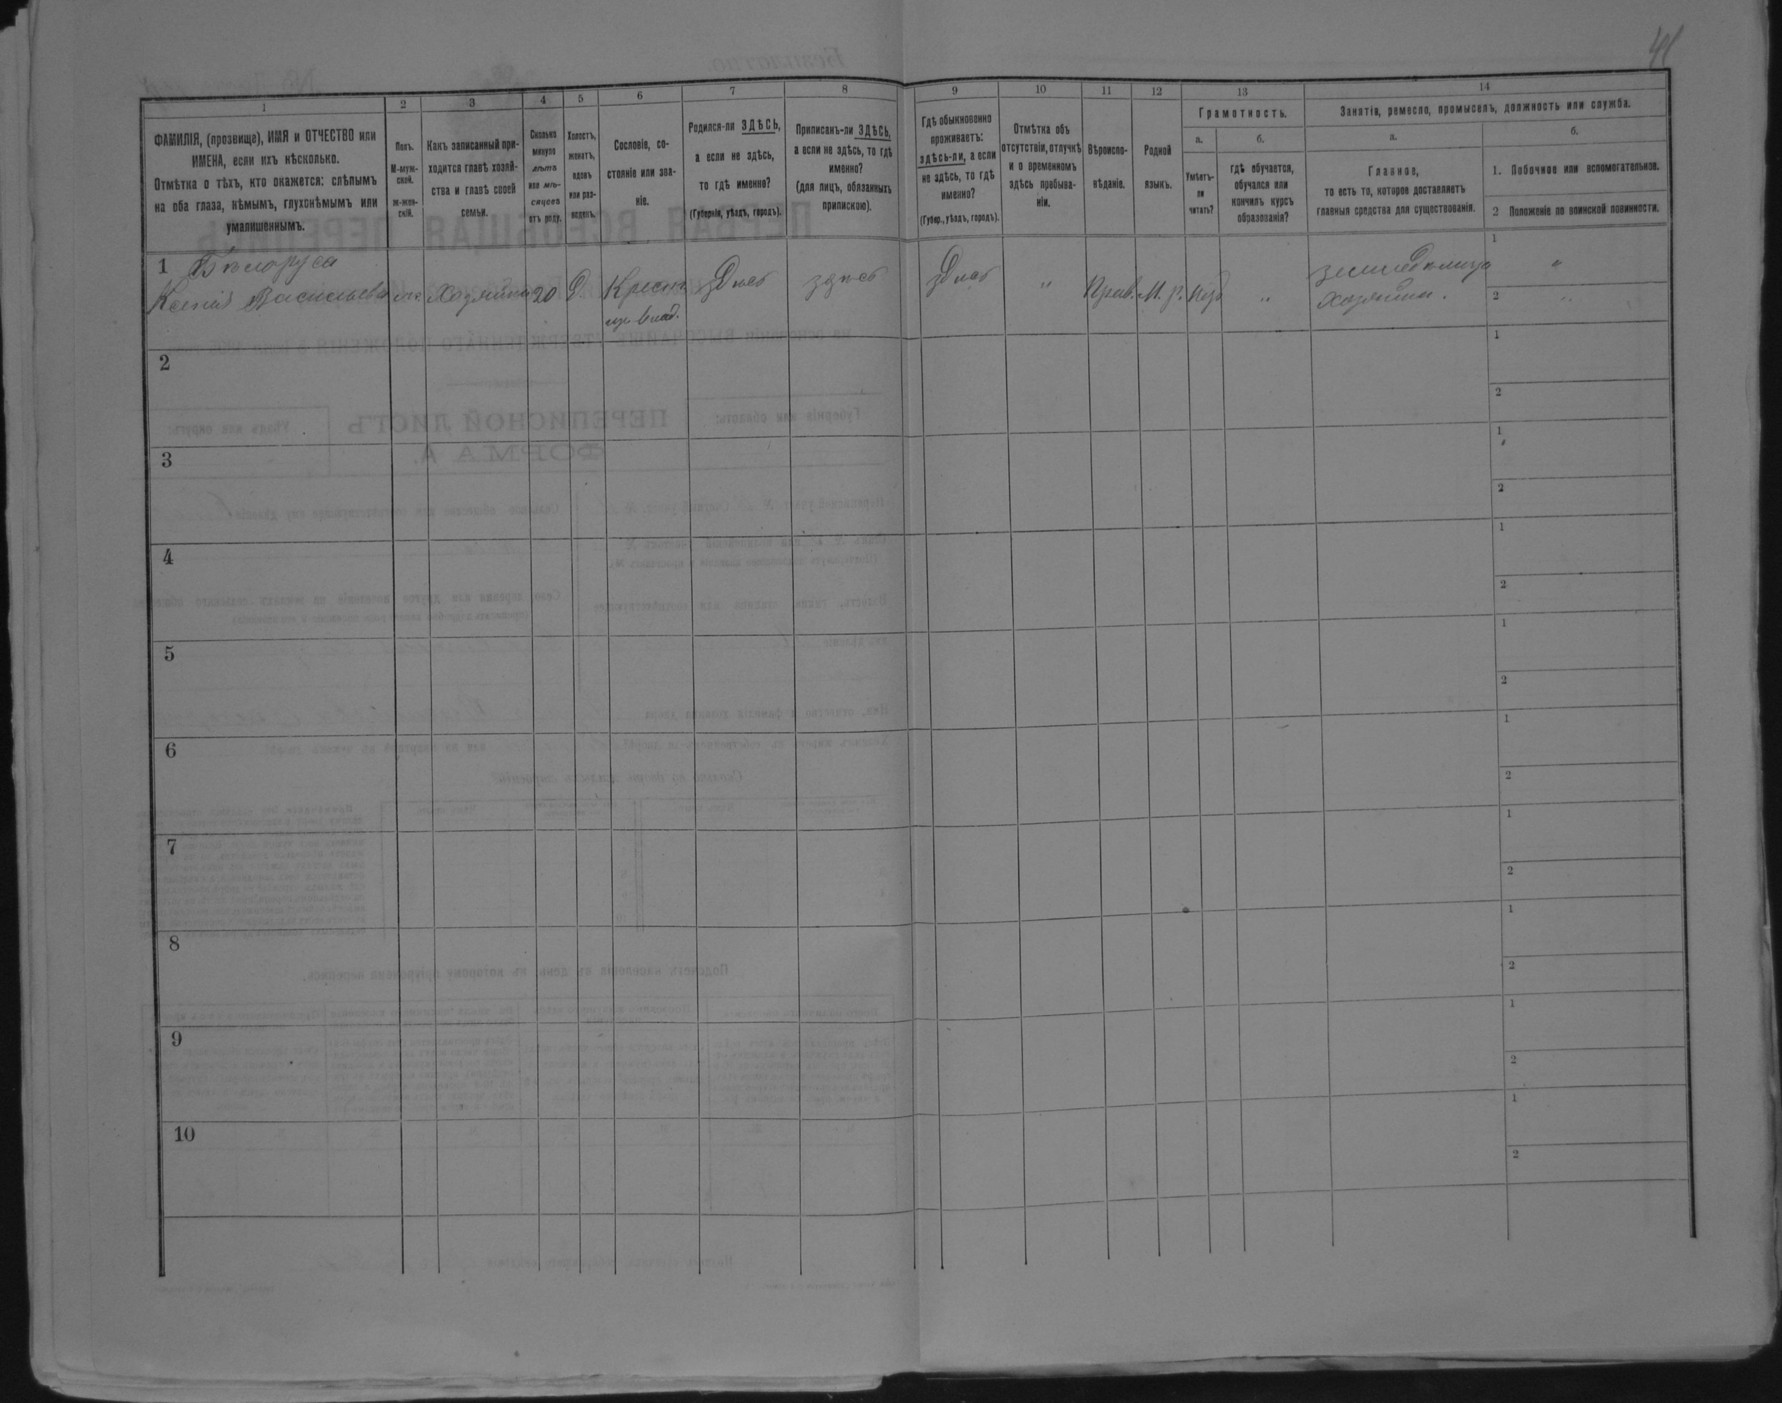 41
1
2
3
4
5
6
7
8
9
10
11
12
13
14
ФАМИЛІЯ, (прозвище), ИМЯ и ОТЧЕСТВО или
ИМЕНА, если ихъ нѣсколько.
Отмѣтка о тѣхъ, кто окажется: слѣпымъ
на оба глаза, нѣмымъ, глухонѣмымъ или
умалишеннымъ.
Полъ.
М-муж-
ской.
ж-жен-
скій.
Какъ записанный при-
ходится главѣ хозяй-
ства и главѣ своей
семьи.
Сколько
минуло
лѣтъ
или мѣ-
сяцевъ
отъ роду.
Холостъ,
женатъ,
вдовъ
или раз-
веденъ.
Сословіе, со-
стояніе или зва-
ніе.
Родился-ли ЗДѢСЬ,
а если не здѣсь,
то гдѣ именно?
(Губернія, уѣздъ, городъ).
Приписанъ-ли ЗДѢСЬ,
а если не здѣсь, то гдѣ
именно?
(для лицъ, обязанныхъ
припискою).
Гдѣ обыкновенно
проживаетъ:
здѣсь-ли, а если
не здѣсь, то гдѣ
именно?
(Губер., уѣздъ, городъ).
Отмѣтка объ
отсутствіи, отлучкѣ
и о временномъ
здѣсь пребыва-
ніи.
Вѣроиспо-
вѣданіе.
Родной
языкъ.
Грамотность.
а.
Умѣетъ-
ли
читать?
б.
гдѣ обучается,
обучался или
кончилъ курсъ
образованія?
Занятія, ремесло, промыселъ, должность или служба.
а.
Главное,
то есть то, которое доставляетъ
главныя средства для существованія.
б.
1. Побочное или вспомогательное.
2 Положеніе по воинской повинности.
1 Бѣлоруса
Ксенія Васильева
Хозяйка
20
Крест.
влад.
здѣсь
здѣсь
здѣсь
"
Прав.
М. р.
"
хозяйка.
1 "
2 "
2
1
2
3
1
2
4
1
2
5
1
2
6
1
2
7
1
2
8
1
2
9
1
2
10
1
2